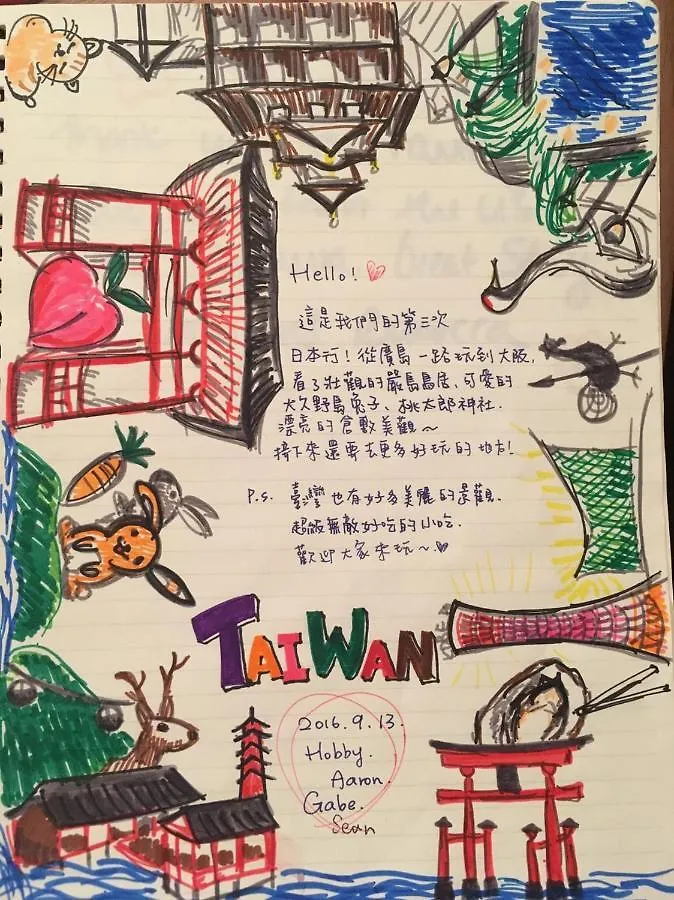 Hello!
這是我們的第三次
日本行！從廣島一路玩到大阪，
看了壯觀的嚴島鳥居、可愛的
大久野島兔子、桃太郎神社.
漂亮的倉敷美觀～
接下來還要去更多好玩的地方！
P.S. 臺灣也有好多美麗的景觀.
超級無敵好吃的小吃.
歡迎大家來玩～
TAIWAN
2016.9.13.
Hobby.
Aaron.
Gabe.
Sean